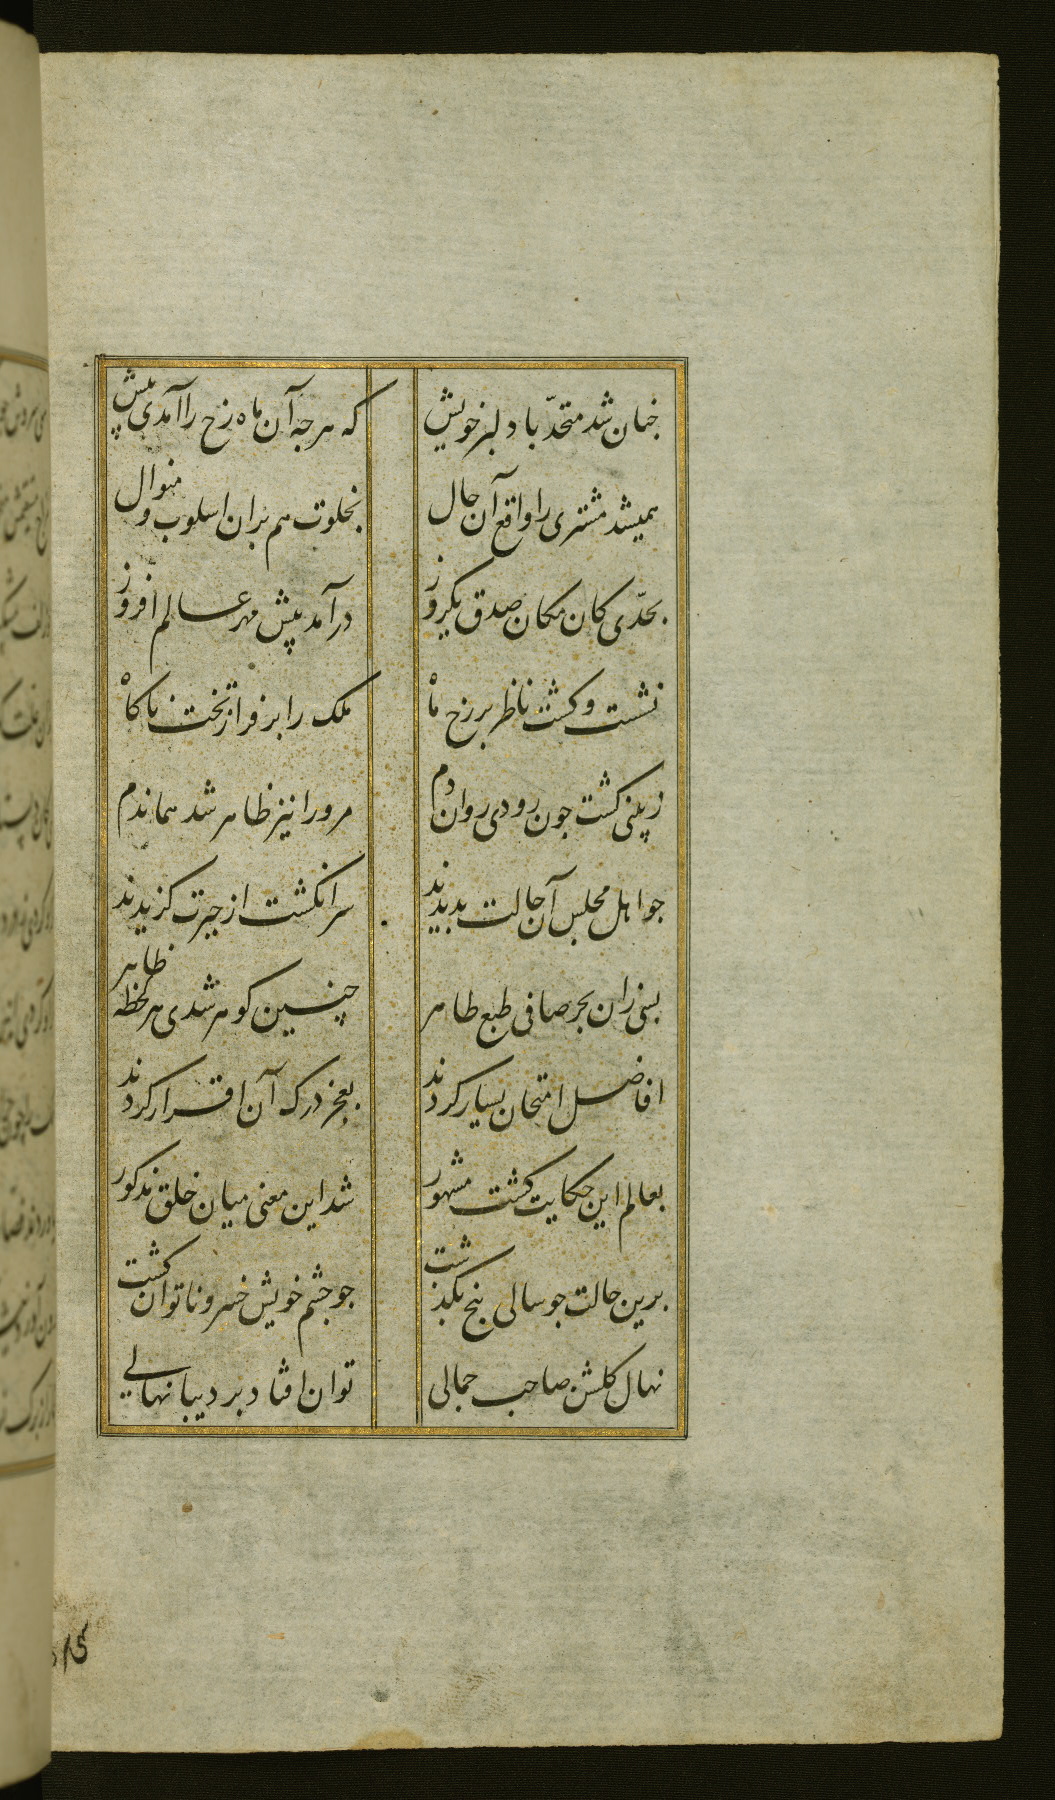 جنان شد متحدّ با دلبر خویش که هرجه آن ماه رخ را آمدی پیش
همیشد مشتری را واقع آن حال بخلوت هم بران اسلوب و منوال
بحدّی کان مکان صدق یکروز درآمد پیش مهر عالم افروز
نشست و کشت ناظر بر رخ ماه ملک را بر فراز تخت ناکاه
ز بینی کشت جون رودی روان دم مر او را نیز ظاهر شد هماندم
جو اهل مجلس آن حالت بدیدند سر انکشت از حیرت کزیدند
بسی زان بحر صافی طبع طاهر جنین کوهر شدی هر لحظه ظاهر
افاضل امتحان بسیار کردند بعجز درک آن اقرار کردند
بعالم این حکایت کشت مشهور شد این معنی میان خلق مذکور
برین حالت جو سالی پنج بکذشت جو جشم خویش خسرو ناتوان کشت
نهال کلشن صاحب جمالی توان افتاد بر دیبا نهالی